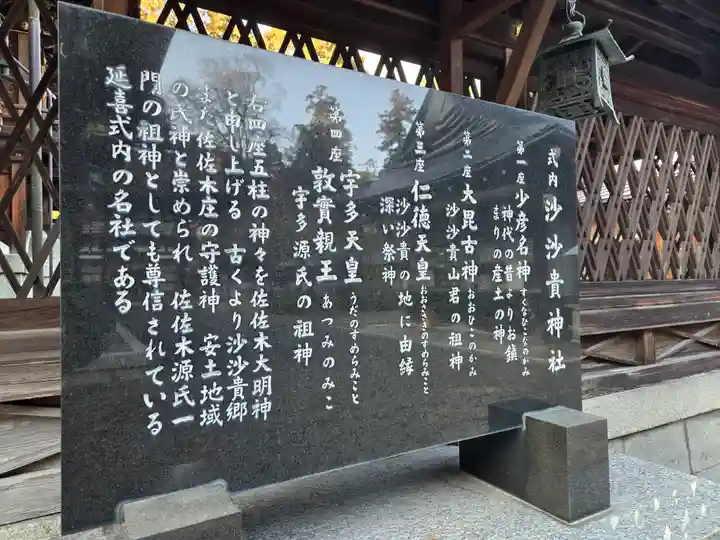 式内 沙沙貴神社
第一座 少彦名神 すくなひこなのかみ
神代の昔よりお鎮
まりの産土の神
第二座 大毘古神 おおひこのかみ
沙沙貴山君の祖神
第三座 仁徳天皇 おおささぎのすめらみこと
沙沙貴の地に由縁
深い祭神
第四座 宇多天皇 うだのすめらみこと
敦實親王 あつみのみこ
宇多源氏の祖神
右四座五柱の神々を佐佐木大明神
と申し上げる 古くより沙沙貴郷
また 佐佐木庄の守護神 安土地域
の氏神と崇められ 佐佐木源氏一
門の祖神としても尊信されている
延喜式内の名社である